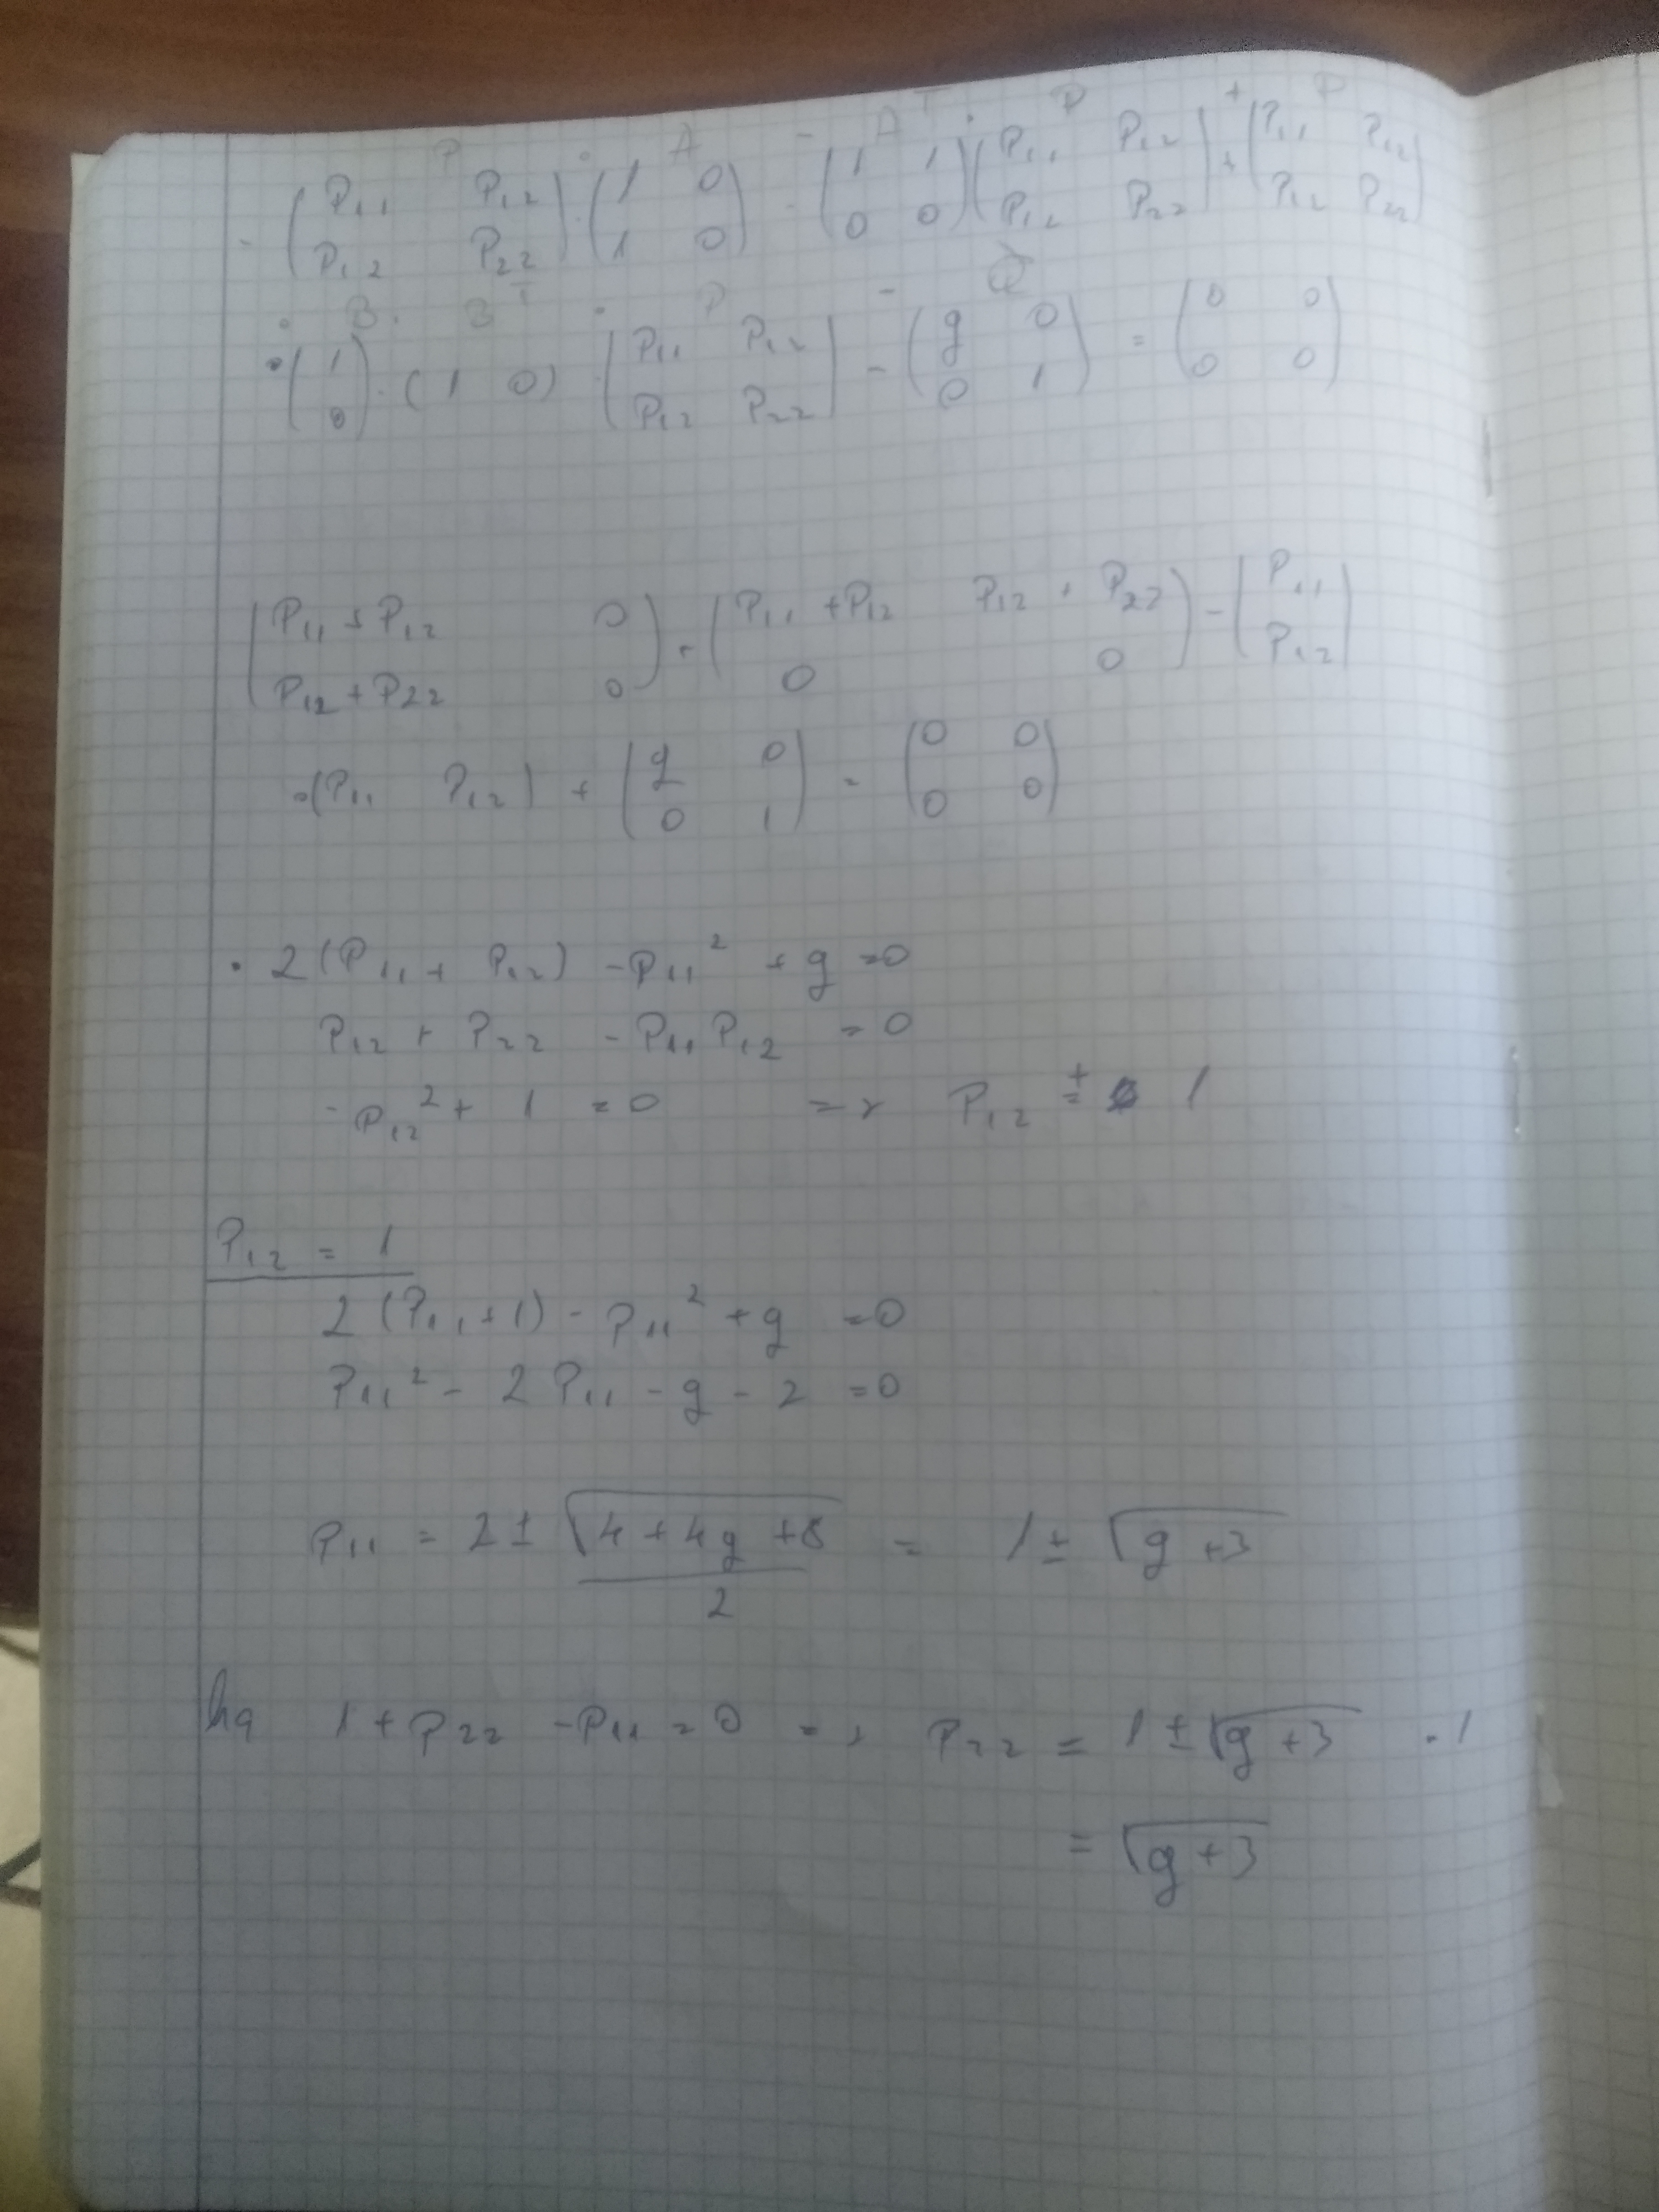 P · A - Aᵀ · P + P
- (P₁₁ P₁₂ / P₁₂ P₂₂) · (1 0 / 1 0) - (1 1 / 0 0) (P₁₁ P₁₂ / P₁₂ P₂₂) + (P₁₁ P₁₂ / P₁₂ P₂₂)
· B · Bᵀ · P - Q
· (1 / 0) · (1 0) · (P₁₁ P₁₂ / P₁₂ P₂₂) - (q 0 / 0 1) = (0 0 / 0 0)
(P₁₁ + P₁₂ 0 / P₁₂ + P₂₂ 0) + (P₁₁ + P₁₂ P₁₂ + P₂₂ / 0 0) - (P₁₁ / P₁₂)
· (P₁₁ P₁₂) + (q 0 / 0 1) = (0 0 / 0 0)
· 2(P₁₁ + P₁₂) - P₁₁² + q = 0
P₁₂ + P₂₂ - P₁₁ P₁₂ = 0
- P₁₂² + 1 = 0 => P₁₂ = ± 1
P₁₂ = 1
2(P₁₁ + 1) - P₁₁² + q = 0
P₁₁² - 2P₁₁ - q - 2 = 0
P₁₁ = 2 ± √(4 + 4q + 8) / 2 = 1 ± √(q + 3)
1 + P₂₂ - P₁₁ = 0 => P₂₂ = 1 ± √(q + 3) - 1
= √(q + 3)